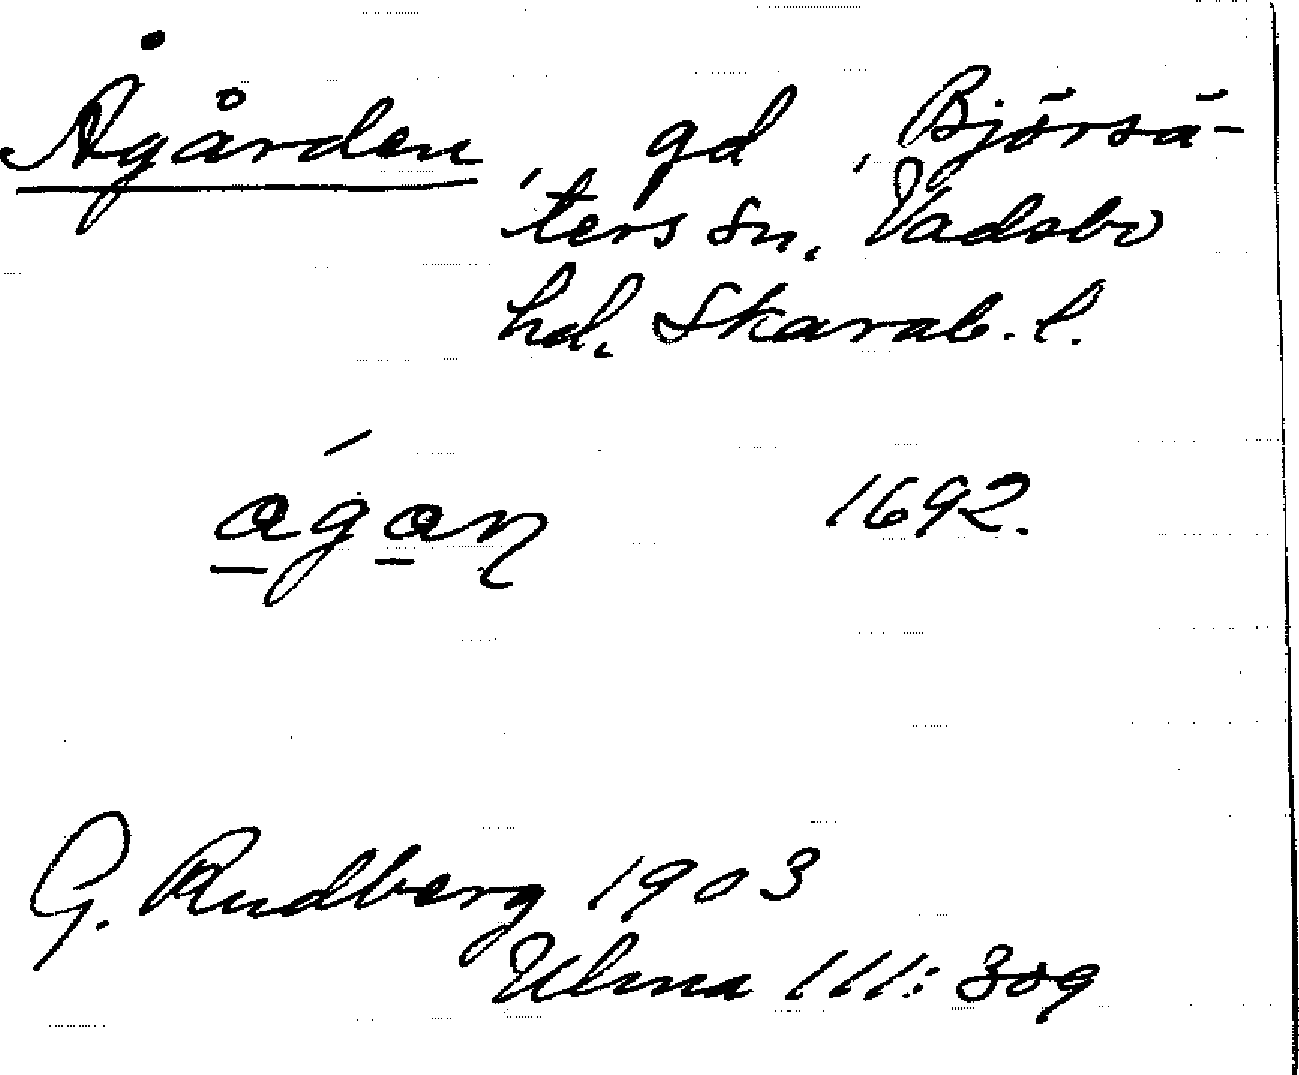 Ågården, gd, Björsä-
ters sn, Vadsbo
hd, Skarab. l.
ágaɳ 1692.
G. Rudberg 1903
Ulma 111:309